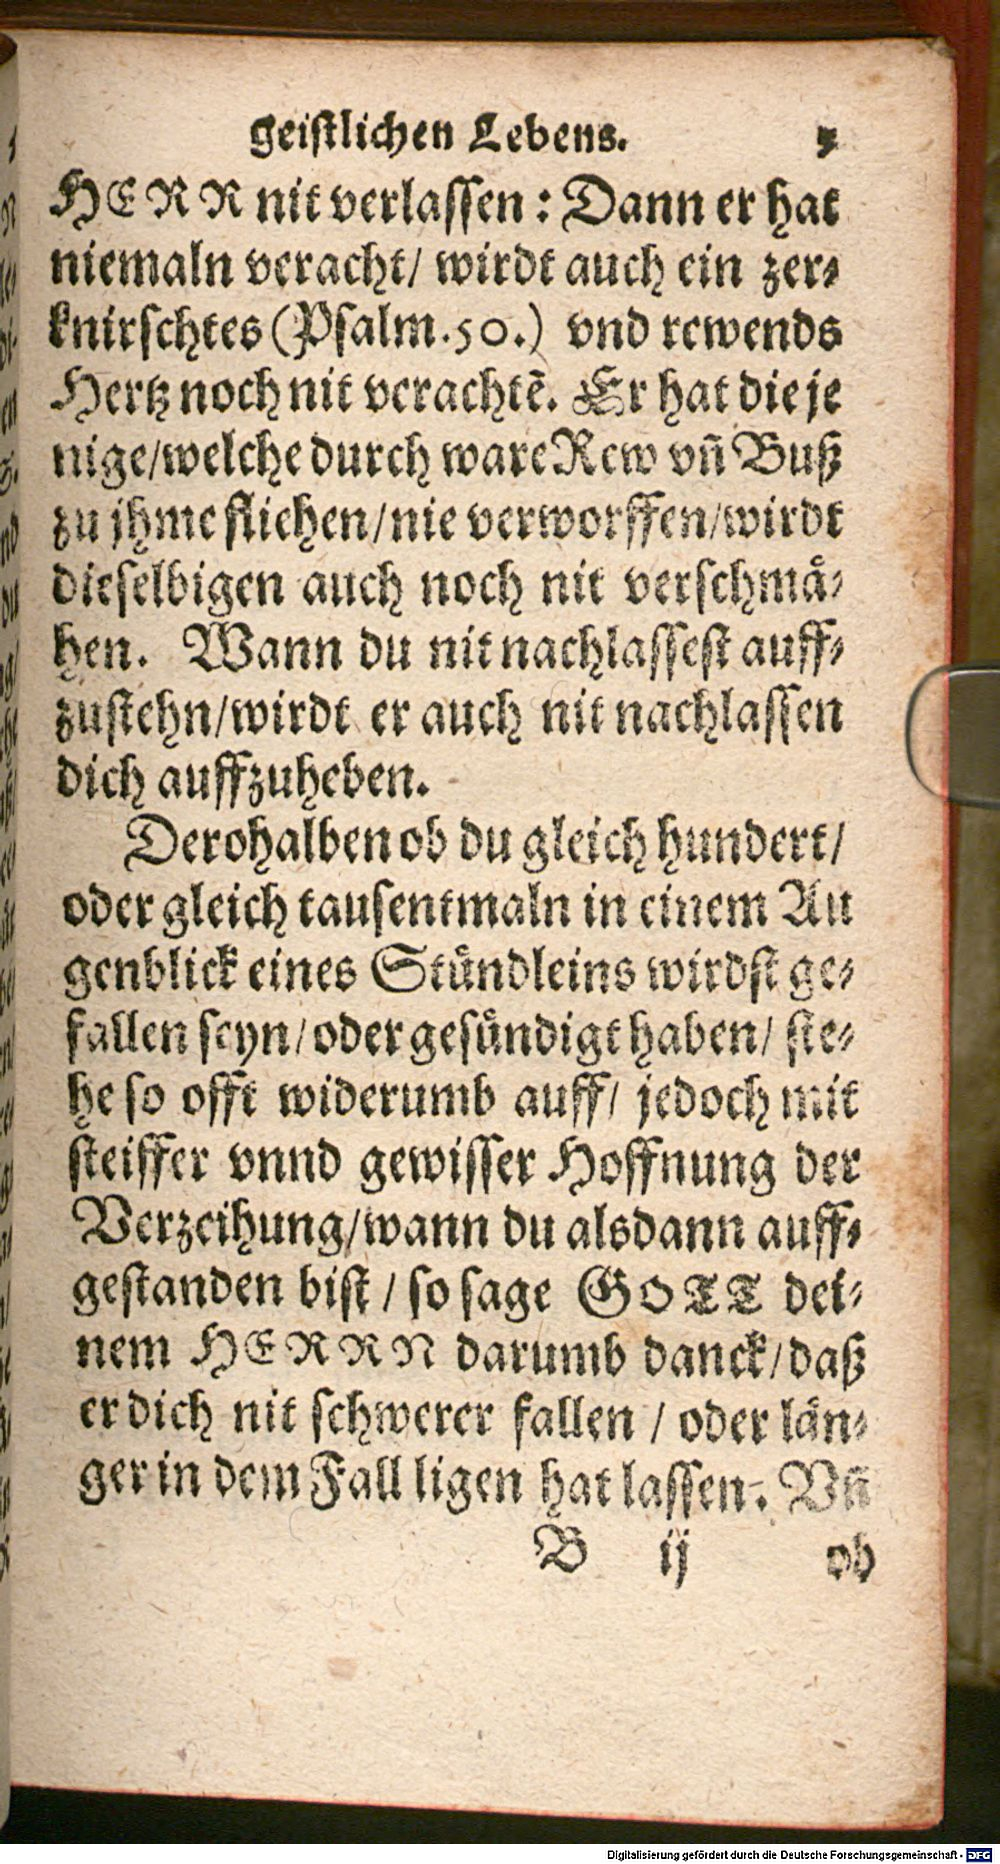 geistlichen Lebens.
HERR nit verlassen : Dann er hat
niemaln veracht/ wirdt auch ein zer⸗
knirschtes (Psalm. 50.) vnd rewends
Hertz noch nit verachtē. Er hat die je
nige/welche durch ware Rew vñ Buß
zu jhme fliehen/nie verworffen/wirdt
dieselbigen auch noch nit verschmä⸗
hen. Wann du nit nachlassest auff⸗
zustehn/wirdt er auch nit nachlassen
dich auffzuheben.
Derohalben ob du gleich hundert/
oder gleich tausentmaln in einem Au
genblick eines Stündleins wirdst ge⸗
fallen seyn/oder gesündigt haben/ ste⸗
he so offt widerumb auff/ jedoch mit
steiffer vnnd gewisser Hoffnung der
Verzeihung/wann du alsdann auff⸗
gestanden bist / so sage GOTT dei⸗
nem HERRN darumb danck/daß
er dich nit schwerer fallen / oder län⸗
ger in dem Fall ligen hat lassen. Vñ
B ij ob
Digitalisierung gefördert durch die Deutsche Forschungsgemeinschaft - DFG